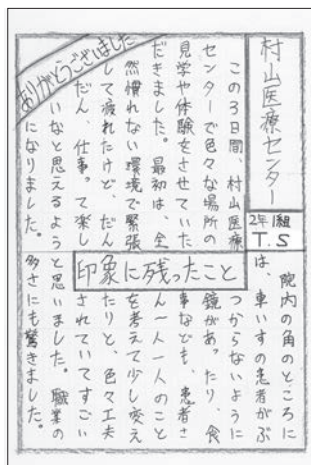 村山医療センター
2年1組
T.S
ありがとうございました
この3日間、村山医療
センターで色々な場所の
見学や体験をさせていた
だきました。最初は、全
然慣れない環境で緊張
して疲れたけど、だん
だん、仕事って楽し
いなと思えるよう
になりました。
印象に残ったこと
院内の角のところに
は、車いすの患者がぶ
つからないように
鏡があったり、食
事なども、患者さ
ん一人一人のこと
を考えて少し変え
たりと、色々工夫
されていてすごい
と思いました。職業の
多さにも驚きました。